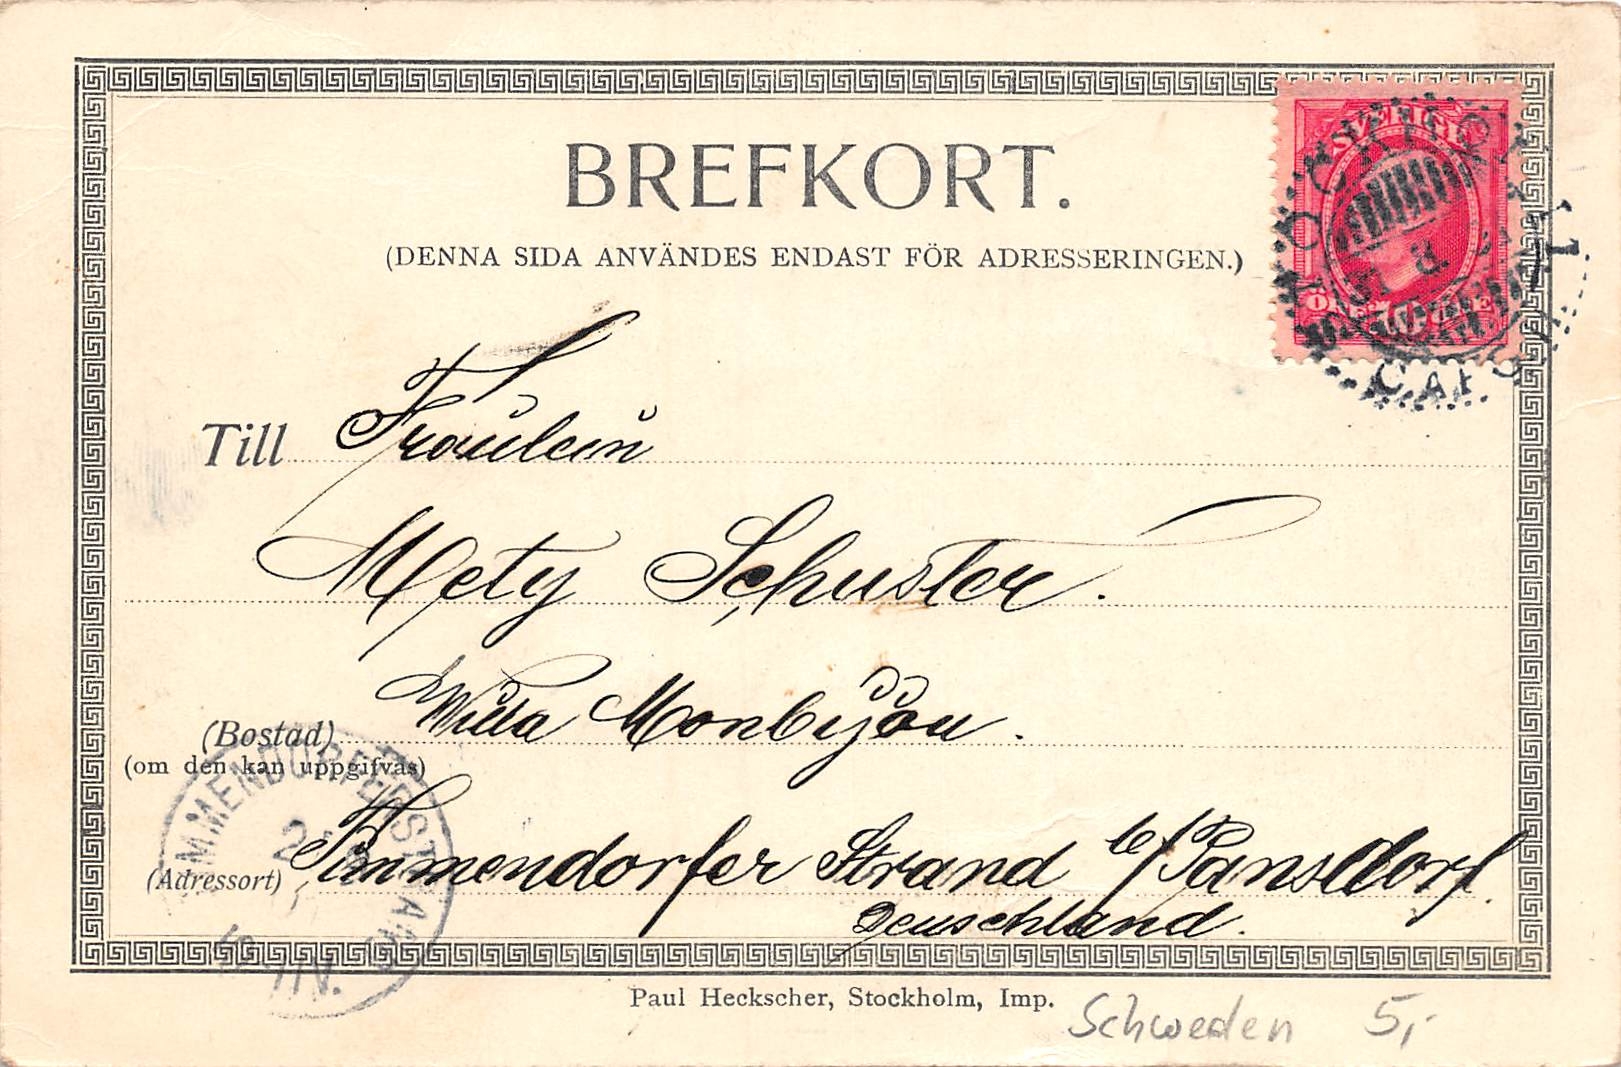 BREFKORT.
(DENNA SIDA ANVÄNDES ENDAST FÖR ADRESSERINGEN.)
SVERIGE
Till Fräulein
Mety Schuster.
(Bostad) Willa Monbijou.
(om den kan uppgifvas)
(Adressort) Timmendorfer Strand b/Pansdorf.
Deutschland.
Paul Heckscher, Stockholm, Imp.
Schweden 5,-